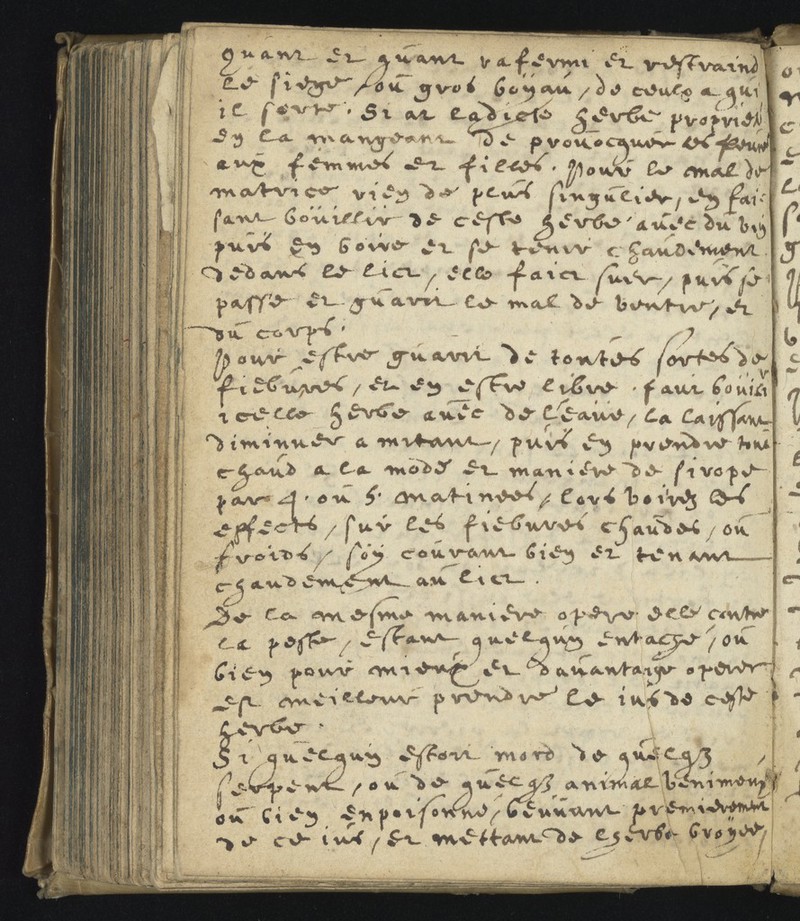 quant et quant rafermi et restraind
le siege, ou gros boyau, de ceulx a qui
il sorte. Et at ladicte herbe propriete
en la mangeant de provocquer les fleurs
aux femmes et filles. Pour le mal de
matrice rien de plus singulier, en fai-
sant bouillir de ceste herbe avec du vin
puis en boire et se tenir chaudement
dedans le lict, elle faict suer, puis se
passe et guarit le mal de ventre, et
du corps.
Pour estre guarit de toutes sortes de
fiebvres, et en estre libre. faut bouillir
icelle herbe avec de l'eaue, la laissant
diminuer a mitant, puis en prendre tout
chaud a la mode et maniere de sirope
par 4. ou 5. matinees, lors voirez les
effects, sur les fiebures chaudes, ou
froids, soy couvrant bien et tenant
chaudement au lict.
De la mesme maniere opere elle contre
la peste, estant quelqun entaché, ou
bien pour mieux et davantaige operer
est meilleur prendre le ius de ceste
herbe.
Si quelqun estoit mord de quelqz
serpent, ou de quelqz animal venimeux
ou bien enpoisonné, beuvant premierement
de ce ius, et mettant de lherbe broyee,